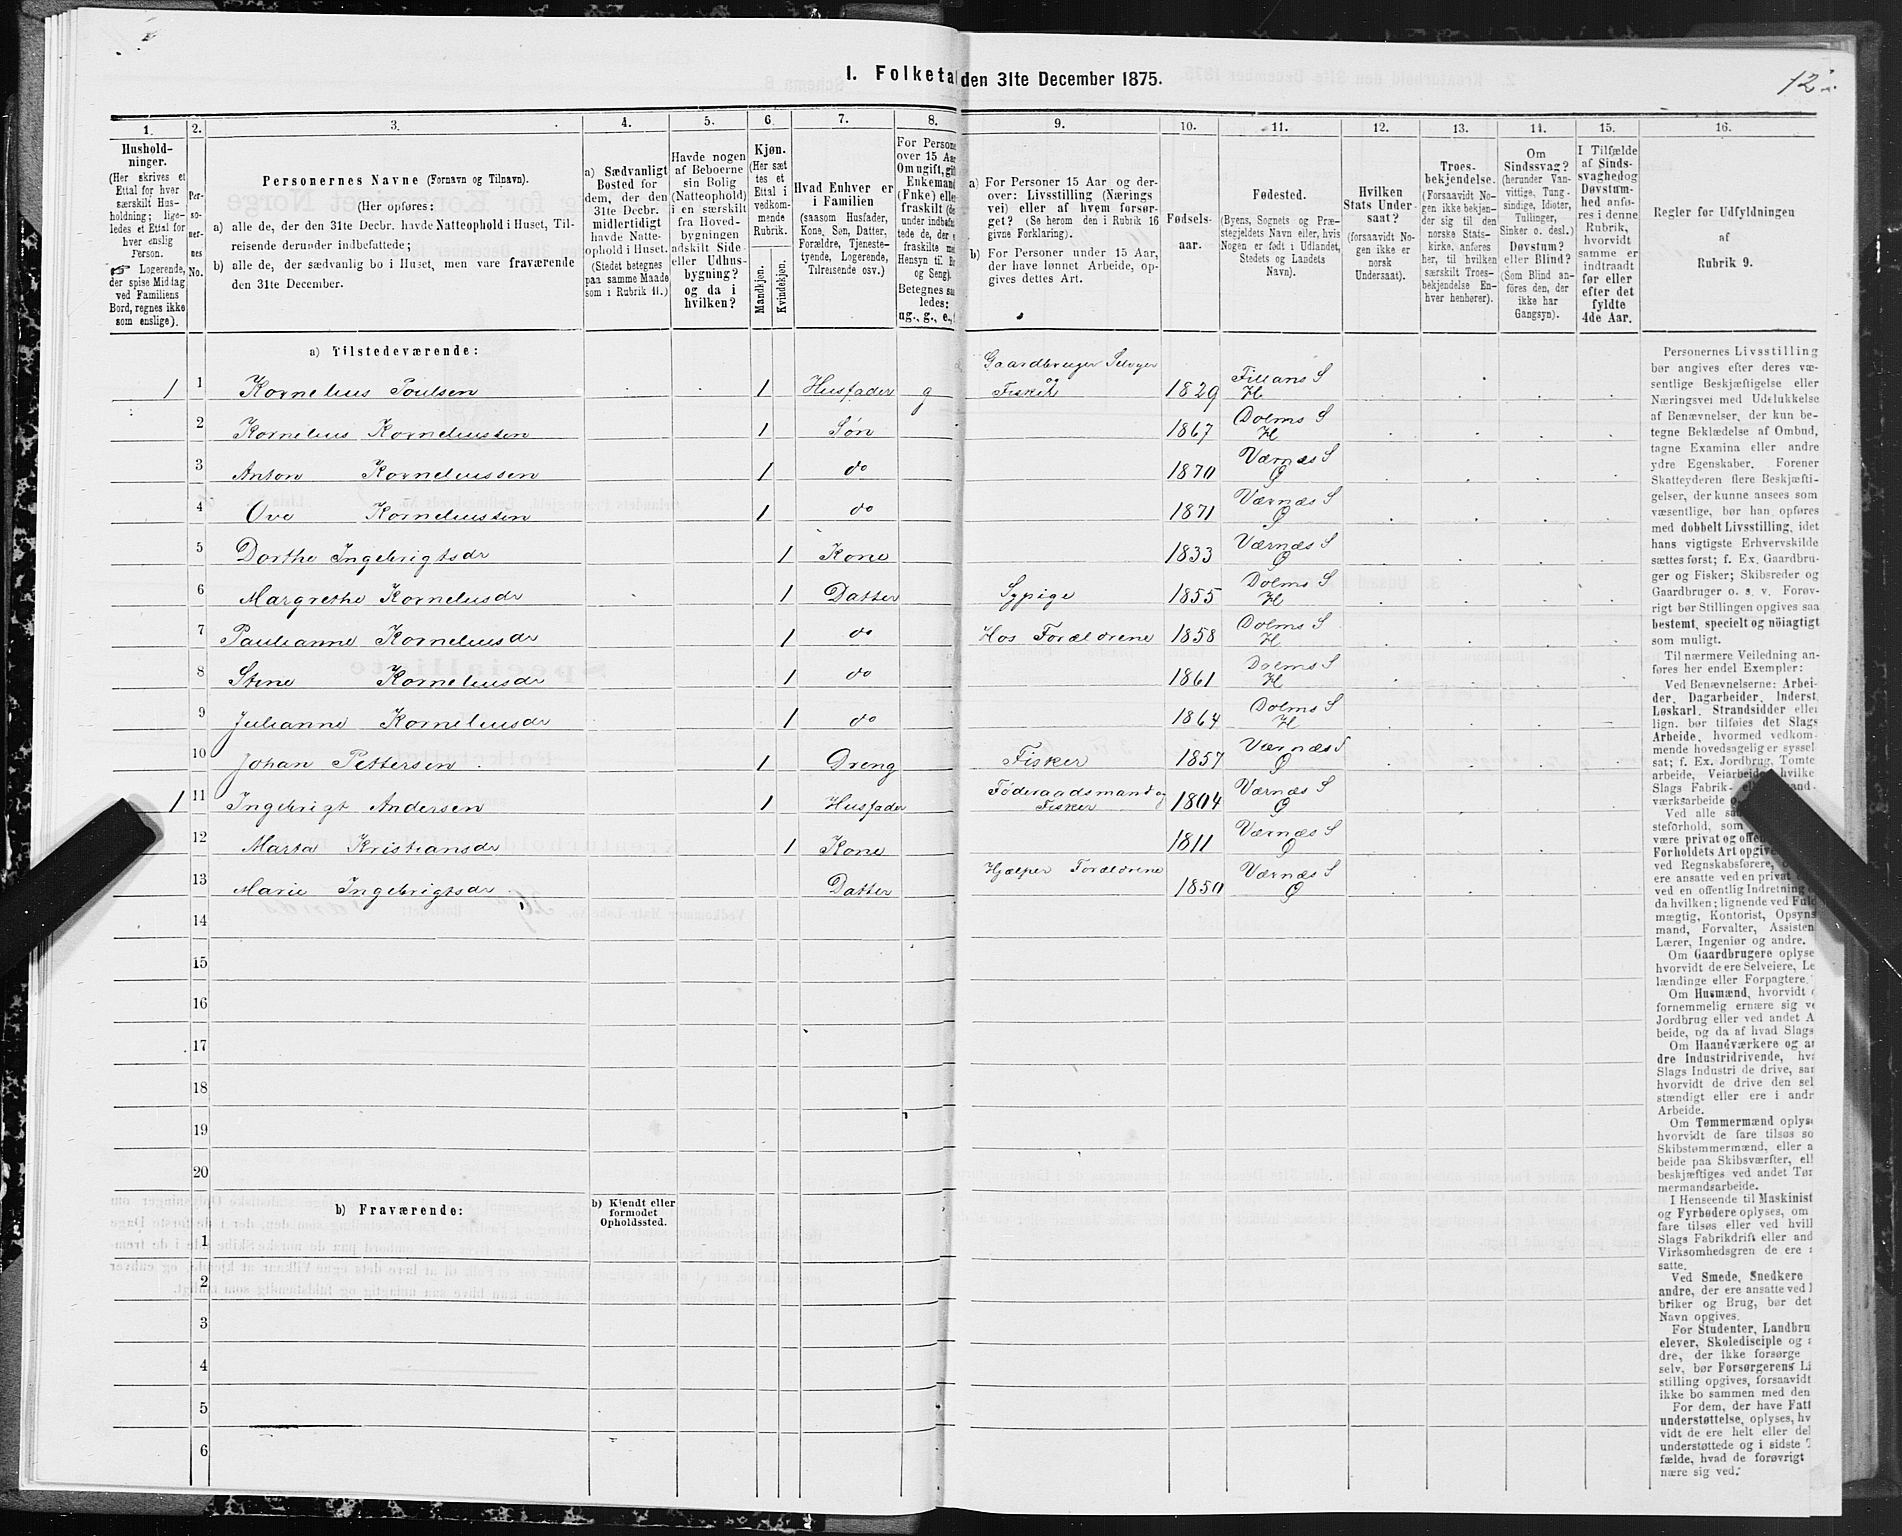 I. Folketal den 31te December 1875.
12
1.
2.
3.
4.
5.
6.
7.
8.
9.
10.
11.
12.
13.
14.
15.
16.
Hushold-
ninger.
(Her skrives et
Ettal for hver
særskilt Hus-
holdning; lige-
ledes et Ettal for
hver enslig
Person.
☞ Logerende,
der spise Middag
ved Familiens
Bord, regnes ikke
som enslige).
Per-
so-
ner-
nes
No.
Personernes Navne (Fornavn og Tilnavn).
(Her opføres:
a) alle de, der den 31te Decbr. havde Natteophold i Huset, Til-
reisende derunder indbefattede;
b) alle de, der sædvanlig bo i Huset, men vare fraværende
den 31te December.
a) Sædvanligt
Bosted for
dem, der den
31te Decbr.
midlertidigt
havde Natte-
ophold i Huset.
(Stedet betegnes
paa samme Maade
som i Rubrik 11.)
Havde nogen
af Beboerne
sin Bolig
(Natteophold)
i en særskilt
fra Hoved-
bygningen
adskilt Side-
eller Udhus-
bygning?
og da i
hvilken?
Kjøn.
(Her sæt-
tes et
Ettal i
vedkom-
mende
Rubrik.
Mandkjøn.
Kvindekjøn.
Hvad Enhver er
i Familien
(saasom Husfader,
Kone, Søn, Datter,
Forældre, Tjeneste-
tyende, Logerende,
Tilreisende osv.)
For Persone
over 15 Aar
Om ugift, gift
Enkemand
(Enke) elle
fraskilt (de
under indbefat-
tede de, de
fraskilte me
Hensyn til Bo
og Seng).
Betegnes saa
ledes:
ug., g., e.,
a) For Personer 15 Aar og der-
over: Livsstilling (Nærings
vei) eller af hvem forsør-
get? (Se herom den i Rubrik 16
givne Forklaring).
b) For Personer under 15 Aar,
der have lønnet Arbeide, op-
gives dettes Art.
Fødsels-
aar.
Fødested.
(Byens, Sognets og Præ-
stegjeldets Navn eller, hvis
Nogen er født i Udlandet,
Stedets og Landets
Navn).
Hvilken
Stats Under-
saat?
(forsaavidt No-
gen ikke er
norsk
Undersaat).
Troes-
bekjendelse.
(Forsaavidt No-
gen ikke bekjen-
der sig til den
norske Stats-
kirke, anføres
her, til hvilken
særskilt Troes-
bekjendelse En-
hver henhører).
Om
Sindssvag?
(herunder Van-
vittige, Tung-
sindige, Idioter,
Tullinger,
Sinker o. desl.)
Døvstum?
eller Blind?
(Som Blind an-
føres den, der
ikke har
Gangsyn).
I Tilfælde
af Sinds-
svaghed og
Døvstum-
hed anfø-
res i denne
Rubrik,
hvorvidt
samme er
indtraadt
før eller
efter det
fyldte
4de Aar.
Regler for Udfyldningen
af
Rubrik 9.
a) Tilstedeværende:
1 1 Kornelius Poulsen 1 Husfader g Gaardbruger Selveier og Fisker 1829 Fillans S H
2 Kornelius Korneliussen 1 Søn 1867 Dolms S H
3 Anton Korneliussen 1 do 1870 Værnæs S Ø
4 Ove Korneliussen 1 do 1871 Værnæs S Ø
5 Dorthe Ingebrigtsdr 1 Kone 1833 Værnæs S Ø
6 Margrethe Korneliusdr 1 Datter Sypige 1855 Dolms S H
7 Paulianne Korneliusdr 1 do Hos Forældrene 1858 Dolms S H
8 Stine Korneliusdr 1 do 1861 Dolms S H
9 Julianne Korneliusdr 1 do 1864 Dolms S H
10 Johan Pettersen 1 Dreng Fisker 1857 Værnæs S Ø
1 11 Ingebrigt Andersen 1 Husfader Føderaadsmand og Fisker 1804 Værnæs S Ø
12 Marta Kristiansdr 1 Kone 1811 Værnæs S Ø
13 Marie Ingebrigtsdr Datter Hjelper Forældrene 1850 Værnæs S Ø
14
15
16
17
18
19
20
b) Fraværende:
b) Kjendt eller
formodet
Opholdssted.
1
2
3
4
5
6
Personernes Livsstilling
bør angives efter deres væ-
sentlige Beskjæftigelse eller
Næringsvei med Udelukkelse
af Benævnelser, der kun be-
tegne Beklædelse af Ombud,
tagne Examina eller andre
ydre Egenskaber. Forener
Skatteyderen flere Beskjæfti-
gelser, der kunne ansees som
væsentlige, bør han opføres
med dobbelt Livsstilling, idet
hans vigtigste Erhvervskilde
sættes først; f. Ex. Gaardbru-
ger og Fisker; Skibsreder og
Gaardbruger o. s. v. Forøv-
rigt bør Stillingen opgives saa
bestemt, specielt og nøiagtigt
som muligt.
Til nærmere Veiledning an-
føres her endel Exempler:
Ved Benævnelserne: Arbei-
der, Dagarbeider, Inderst,
Løskarl, Strandsidder eller
lign. bør tilføies det Slags
Arbeide, hvormed vedkom-
mende hovedsagelig er syssel-
sat; f. Ex. Jordbrug, Tomte
arbeide, Veiarbeide, hvilke
Slags Fabrik- e
værksarbeide o
Ved alle
steforhold, som
være privat og offen
Forholdets Art opgiv
ved Regnskabsførere,
ere ansatte ved en privat
ved en offentlig Indretning
da hvilken; lignende ved Fuld
mægtig, Kontorist, Opsyns
mand, Forvalter, Assisten
Lærer, Ingeniør og andre.
Om Gaardbrugere oplyse
hvorvidt de ere Selveiere, Le
lændinge eller Forpagtere.
Om Husmænd, hvorvidt
fornemmelig ernære sig ve
Jordbrug eller ved andet A
beide, og da af hvad Slags
Om Haandværkere og an
dre Industridrivende, hva
Slags Industri de drive, sam
hvorvidt de drive den sel
stændigt eller ere i andr
Arbeide.
Om Tømmermænd oplyse
hvorvidt de fare tilsøs so
Skibstømmermænd, eller a
beide paa Skibsværfter, ell
beskjæftiges ved andet Tøm
mermandsarbeide.
I Henseende til Maskinist
og Fyrbødere oplyses, om
fare tilsøs eller ved hvil
Slags Fabrikdrift eller and
Virksomhedsgren de ere
satte.
Ved Smede, Snedkere
andre, der ere ansatte ved
briker og Brug, bør det
Navn opgives.
For Studenter, Landbru
elever, Skoledisciple og
dre, der ikke forsørge
selv, bør Forsørgerens Li
stilling opgives, forsaavidt
ikke bo sammen med den
For dem, der have Fatt
understøttelse, oplyses, hv
vidt de ere helt eller del
understøttede og i sidste
fælde, hvad de forøvrigt
nære sig ved.